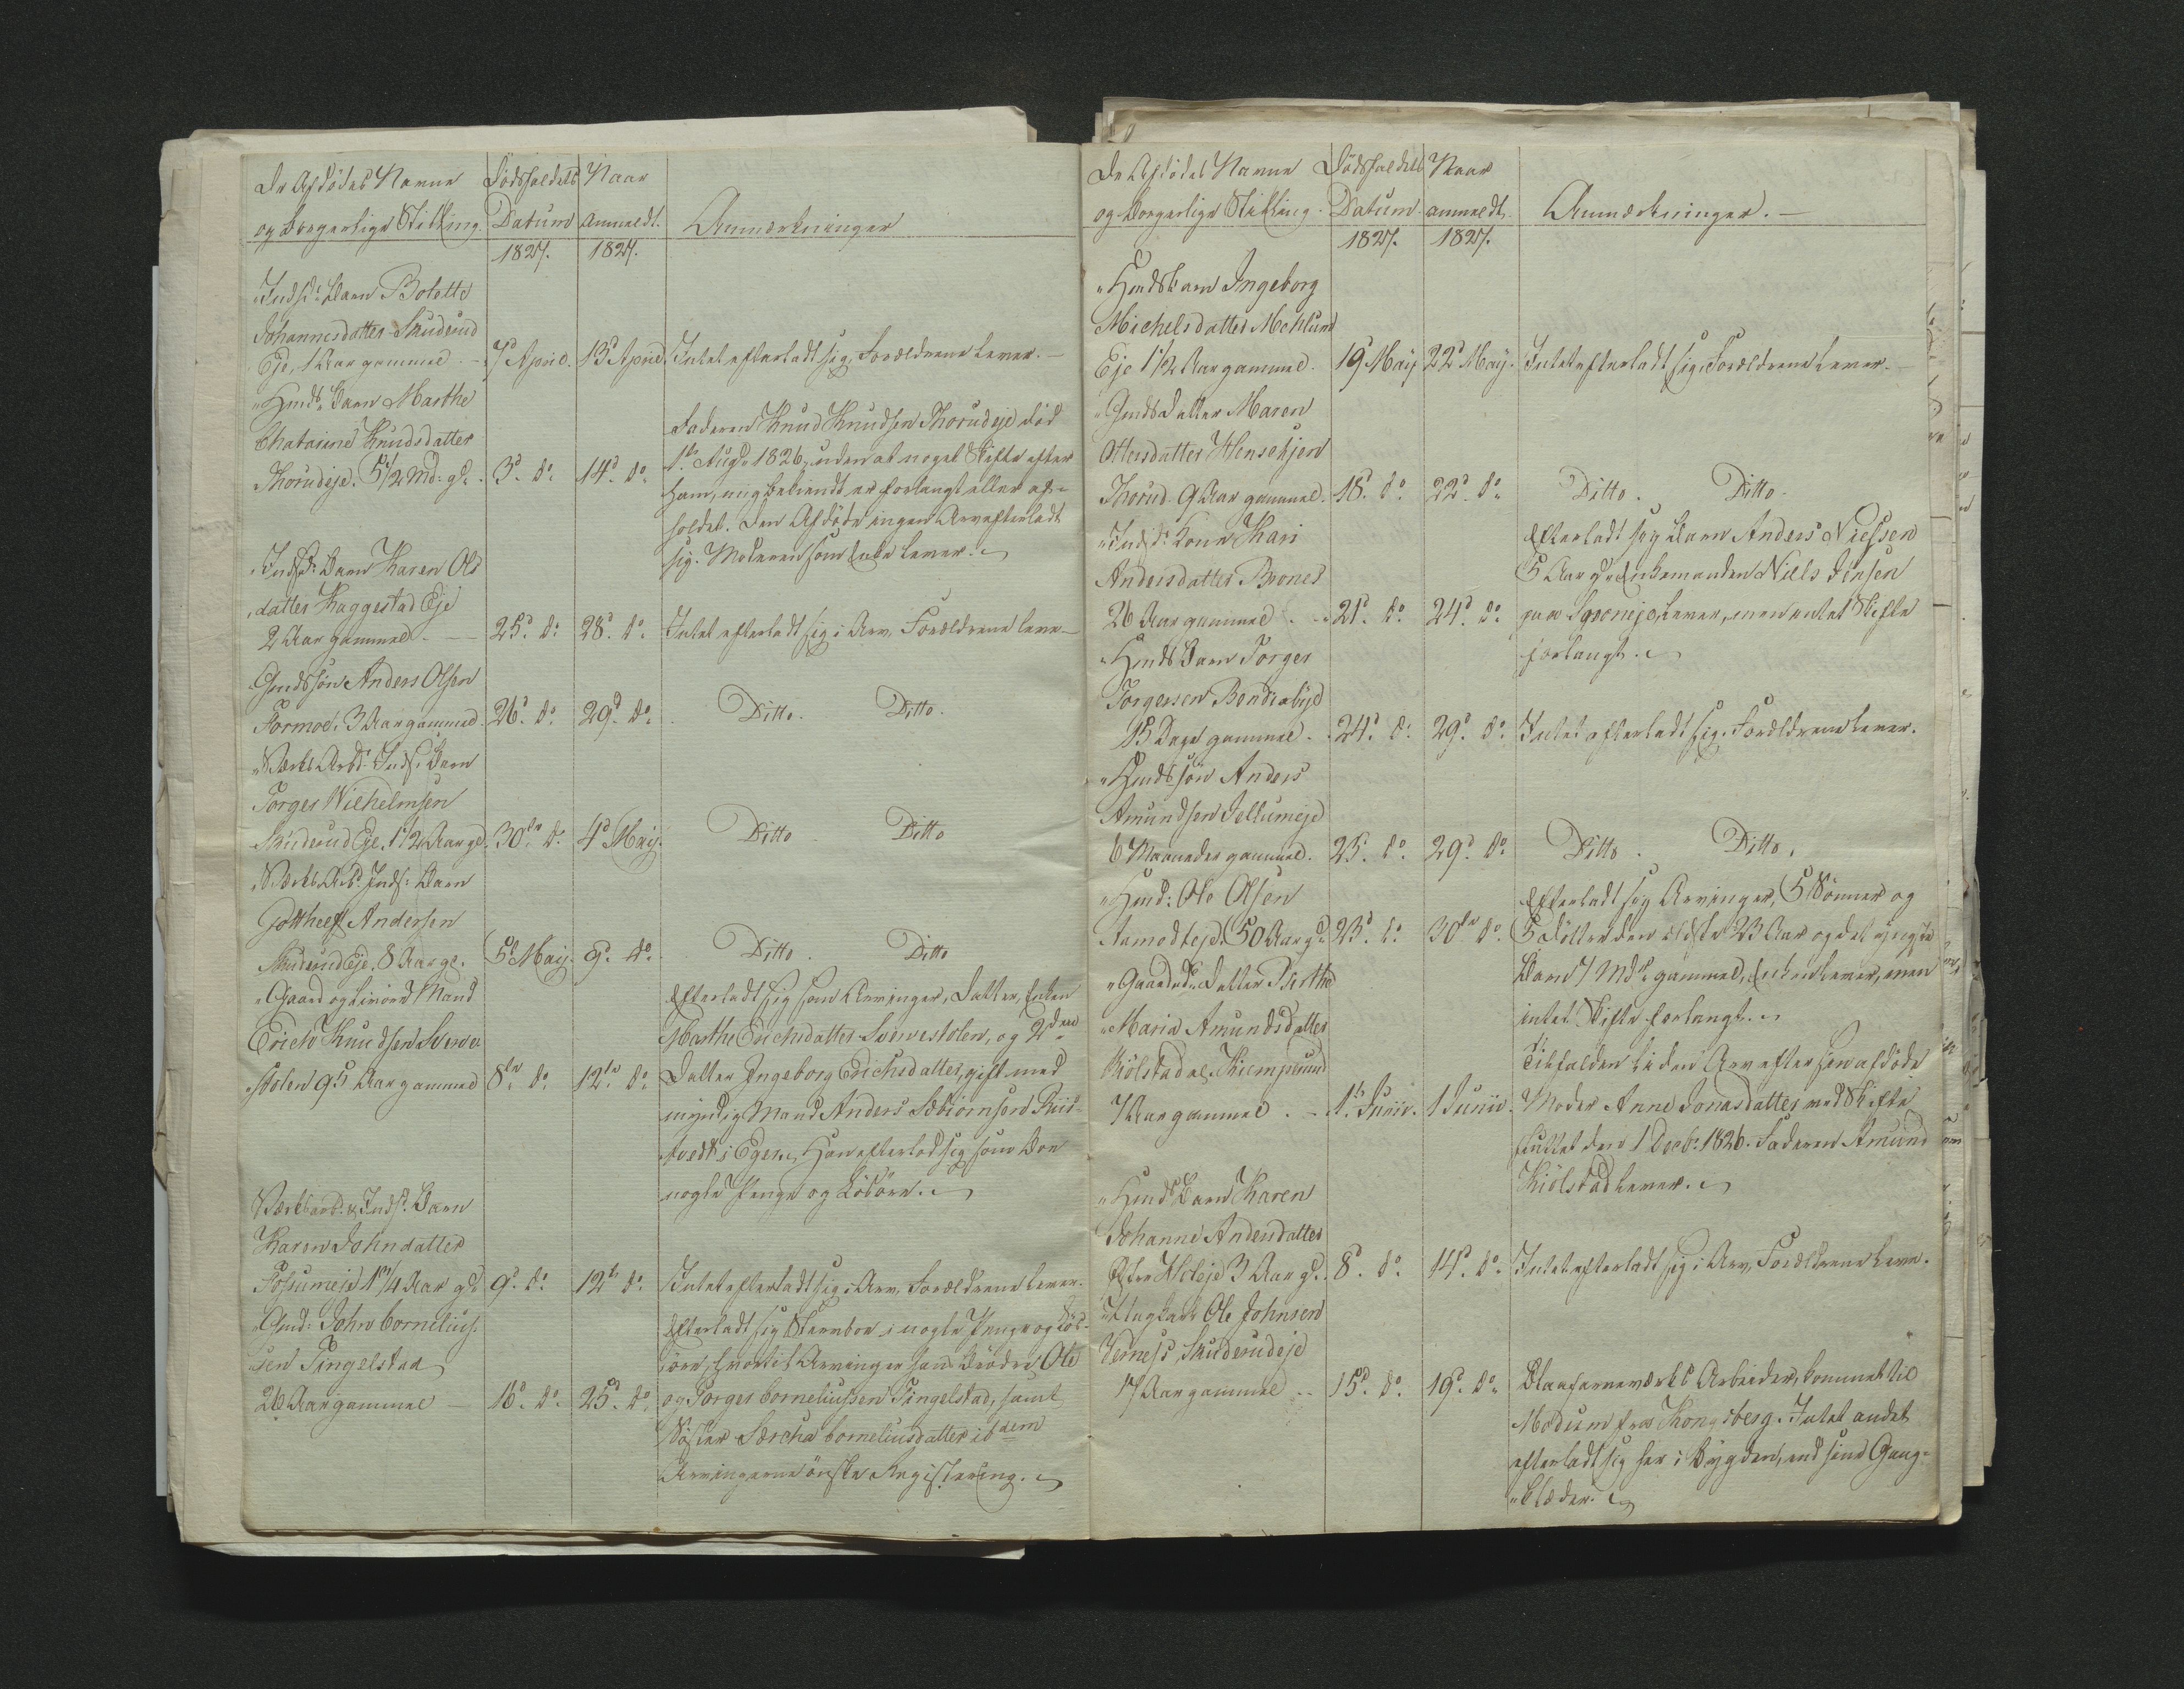 De Afdödes Navne Dödsfaldets Naar
og borgerlige Stilling. Datum anmeldt. Anmærkninger
1827. 1827.
Inds: Barn Bolette
Johannesdatter Skuderud
Eje, 1 Aar gammel. 7d April. 13d April. Intet efterladt sig, Forældrene lever.
Huusds Barn Marthe
Chatarine Knudsdatter
Thorudeje. 5 1/2 Md: gl. 3d do. 14d do.
Faderen Knud Knudsen Thorudeje död
1te Augs 1826, uden at noget Skifte efter
ham, mig bekiendt er forlangt eller af-
holdet. Den Afdöde ingen Arv efterladt
sig. Moderen som Enke lever.
Inds: Barn Karen Ols
datter Haggestad Eje
2 Aar gammel. 25d do. 28d do. Intet efterladt sig i Arv, Forældrene leve
Gmdssön Anders Olsen
Formoe. 3 Aar gammel. 26d do. 29d do. Ditto. Ditto.
Værks Arbd: Inds: Barn
Torger Wilhelmsen
Skuderud Eje. 1 1/2 Aar gl. 30te do. 4d Maij. Ditto. Ditto
Værks Arb: Inds: Barn
Gotthelf Andersen
Skuderud Eje. 8 Aar gl. 5d Maij. 9d do. Ditto. Ditto
Gaard og Livörd Mand
Erich Knudsen Svenve
stolen 95 Aar gammel 8de do. 12te do.
Efterladt sig som Arvinger, Datter, Enken
Marthe Erichsdatter Svenvestolen, og 2den
Datter Ingeborg Erichsdatter, gift med
myndig Mand Anders Sæbiörnsen Riis-
tvedt i Eger. Han efterlod sig som Boe
nogle Penge og Lösöre.
Værksarb: & Inds: Barn
Karen Johndatter
Fossumeje 1 1/4 Aar gl. 9d do. 12te do. Intet efterladt sig i Arv, Forældrene lever.
Gmd: John Cornelius-
sen Tingelstad
26 Aar gammel 16d do. 25d do.
Efterladt sig Stervboe i nogle Penge og Lös-
öre, hvortil Arvinger hans Brödre Ole
og Torger Corneliussen Tingelstad, samt
Söster Sercha Corneliusdatter ibdem
Arvingerne önske Registering.
De Afdödes Navne Dödsfaldets Naar
og borgerlige Stilling. Datum anmeldt. Anmærkninger.
1827. 1827.
Hmdsbarn Ingeborg
Michelsdatter Meklund
Eje 1 1/2 Aar gammel. 19d Maij 22d Maij. Intet efterladt sig, Forældrene lever.
Gmdsdatter Maren
Ottersdatter Hensehjen
Thorud. 9 Aar gammel. 18d do. 22d do. Ditto. Ditto.
Inds: Kone Kari
Andersdatter Brones
26 Aar gammel. 21d do. 24d do.
Efterladt sig Barn Anders Nielsen
5 Aar gl. Enkemanden Niels Jensen
paa lever, men intet Skifte
forlangt.
Hmds Barn Torger
Torgersen Bendiabye
15 Dage gammel. 24d do. 29d do. Intet efterladt sig. Forældrene lever.
Hmds sön Anders
Amundsen Jellumeje
6 Maaneder gammel. 25d do. 29d do. Ditto. Ditto.
Hmd: Ole Olsen
Aamodteje. 50 Aar gl. 23d do. 30te do.
Efterladt sig Arvinger, 5 Sönner og
5 Döttre den ældste 23 Aar og det yngste
Barn 7 Mdr gammel, Enken lever, men
intet Skifte forlangt.
Gaardmds Datter Berthe
Maria Amundsdatter
Kiölstad al. Kiemperud
7 Aar gammel. 1te Junii. 1 Junii.
Tilfalden hende Arv efter sin afdöde
Moder Anne Jonasdatter ved Skifte
sluttet den 1 Decb: 1826. Faderen Amund
Kiölstad lever.
Hmds Barn Karen
Johanne Andersdatter
3 Aar gl. 8d do. 14d do. Intet efterladt sig i Arv, Forældrene leve.
Ungkarl Ole Johnsen
Verness, Skuderudeje
17 Aar gammel. 15d do. 19d do.
Blaafarveværks Arbeider, kommet til
Modum fra Kongsberg. Intet andet
efterladt sig her i Bygden, end sine Gang-
klæder.